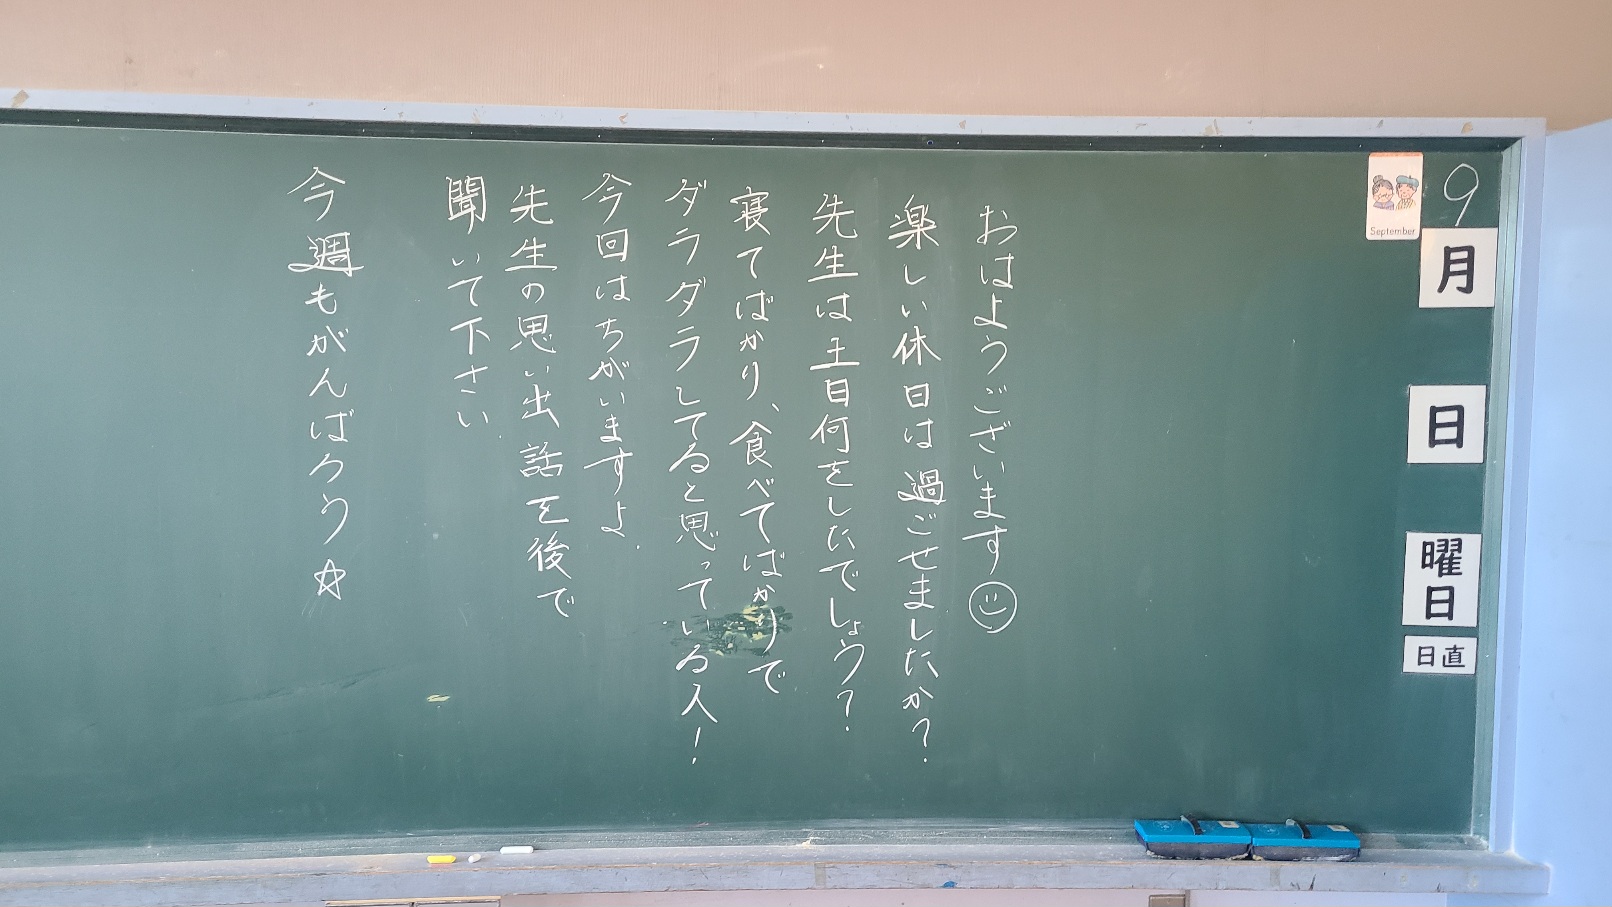 9
月
日
曜日
日直
September
おはようございます
楽しい休日は過ごせましたか?
先生は土日何をしたでしょう?
寝てばかり、食べてばかりで
ダラダラしてると思っている人!
今回はちがいますよ.
先生の思い出話を後で
聞いて下さい.
今週もがんばろう☆